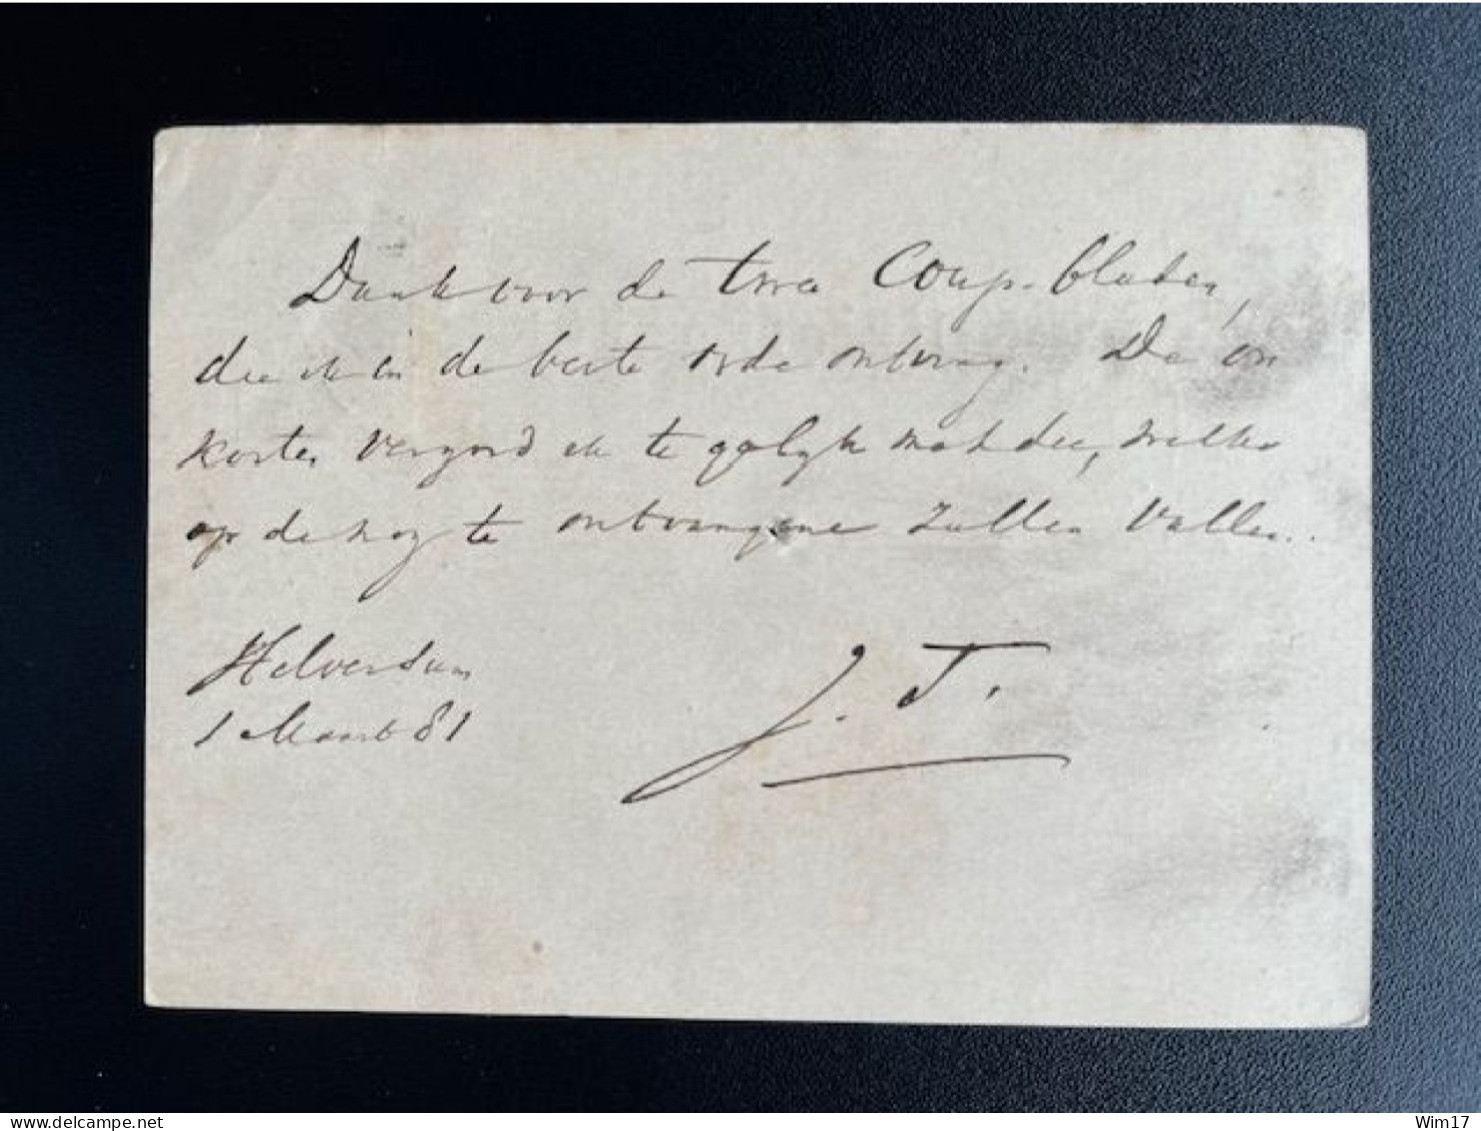 Dank voor de twee Coup. bladen,
die ik in de beste orde ontving. De on
kosten vergoed ik te gelijk met die, welke
op de nog te ontvangene zullen vallen.
Hilversum
1 Maart 81
J. T.
delcampe.net
Wim17